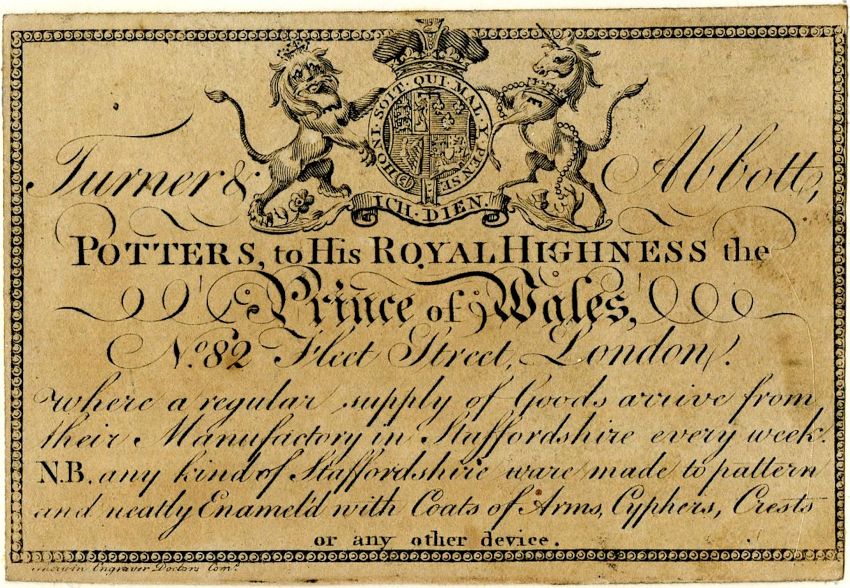 HONI·SOIT·QUI·MAL·Y·PENSE
ICH·DIEN.
Turner & Abbott,
POTTERS, to His ROYAL HIGHNESS the
Prince of Wales,
No. 82 Fleet Street, London.
where a regular supply of Goods arrive from
their Manufactory in Staffordshire every week.
N.B. any kind of Staffordshire ware made to pattern
and neatly Enamel'd with Coats of Arms, Cyphers, Crests
or any other device.
Engraver Doctors Com.s